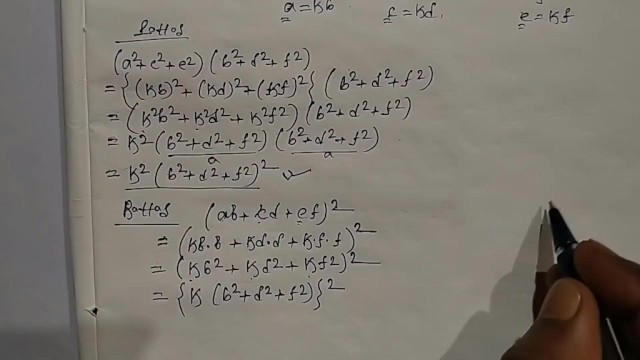 a = Kb f = Kd. e = Kf
(a²+c²+e²) (b²+d²+f²)
= {(Kb)²+(Kd)²+(Kf)²} (b²+d²+f²)
= (K²b²+K²d²+K²f²) (b²+d²+f²)
= K² (b²+d²+f²) (b²+d²+f²)
a a
= K² (b²+d²+f²)² ✓
(ab+cd+ef)²
= (Kb·b+Kd·d+K·f·f)²
= (Kb²+Kd²+Kf²)²
= {K (b²+d²+f²)}²